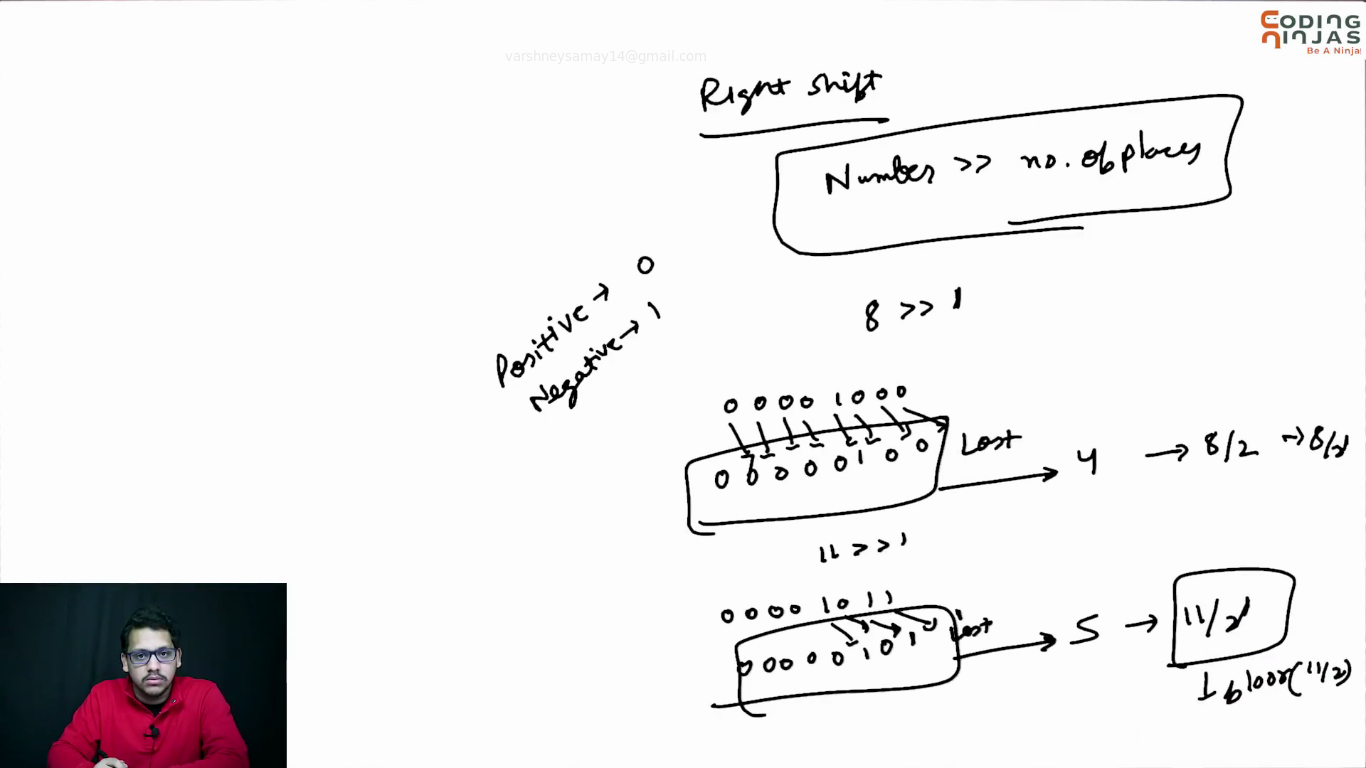 CODING
NINJAS
Be A Ninja
varshneysamay14@gmail.com
Right shift
Number >> no. of places
Positive → 0
Negative → 1
8 >> 1
0 0 0 0 1 0 0 0
0 0 0 0 0 1 0 0 Lost → 4 → 8/2 → 8/2¹
11 >> 1
0 0 0 0 1 0 1 1
0 0 0 0 0 1 0 1 Lost → 5 → 11/2¹
floor(11/2)